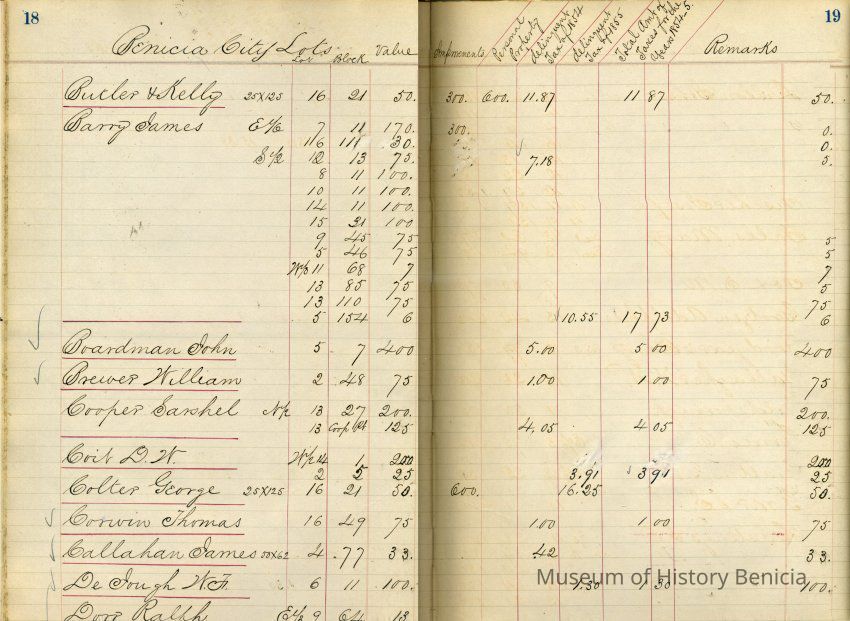 18
19
Benicia City Lots
Lot Block Value
Improvements Personal Property Delinquent Tax of 1854 Delinquent Tax of 1855 Total Amt of Taxes for the Year 1854-5. Remarks
Butler & Kelly 25x125 16 21 50. 300. 600. 11.87 11 87 50.
Barry James E½ 7 11 170. 300. 0.
116 111 30. 0.
S½ 12 13 75. 7.18 5.
8 11 100.
10 11 100.
14 11 100.
15 31 100
9 45 75 5
5 46 75 5
W½ 11 68 7 7
13 85 75 5
13 110 75 75
5 154 6 10.55 17 73 6
Boardman John 5 7 400 5.00 5 00 400
Brewer William 2 48 75 1.00 1 00 75
Cooper Sarshel N½ 13 27 200. 200.
13 Coop 125 4,05 4 05 125
Coit D. W. W½ 14 1 200 200
2 2 25 3.91 3 91 25
Colter George 25x125 16 21 50. 600. 16.25 50.
Corwin Thomas 16 49 75 1.00 1 00 75
Callahan James 4 77 33. .42 33.
De Jough W. F. 6 11 100. 1.30 1 30 100.
Dorr Ralph E½ 9 64 13
Museum of History Benicia